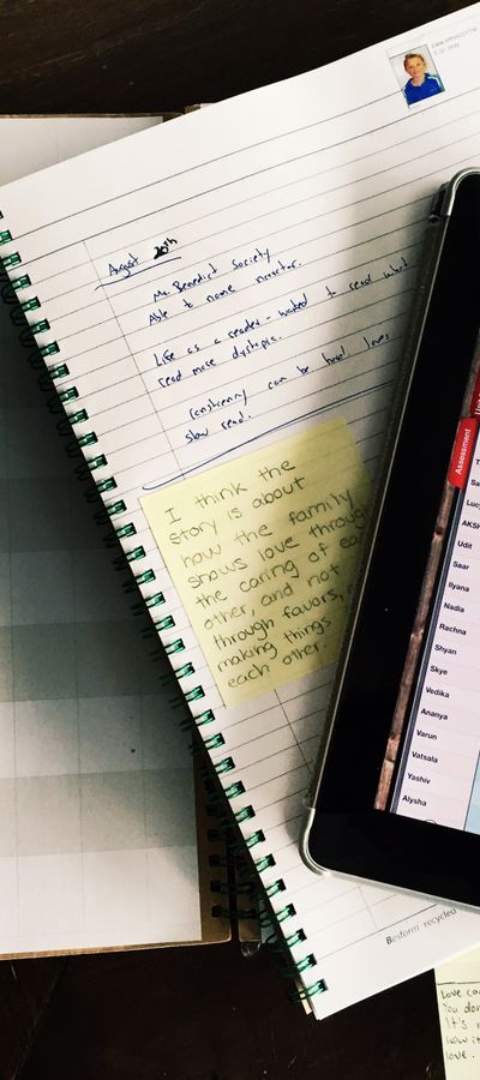 August 20th
Mr. Benedict Society
Able to name narrator.
Life as a reader - wanted to read what
read more dystopia.
can be hard. loves
slow read.
I think the
story is about
how the family
shows love through
the caring of ea
other, and not
through favors,
making things
each other.
Assessment
Udit
Saar
Ilyana
Nadia
Rachna
Shyan
Skye
Vedika
Ananya
Varun
Vatsala
Yashiv
Alysha
Besform recycled
Love ca
You don
It's
how it
love.